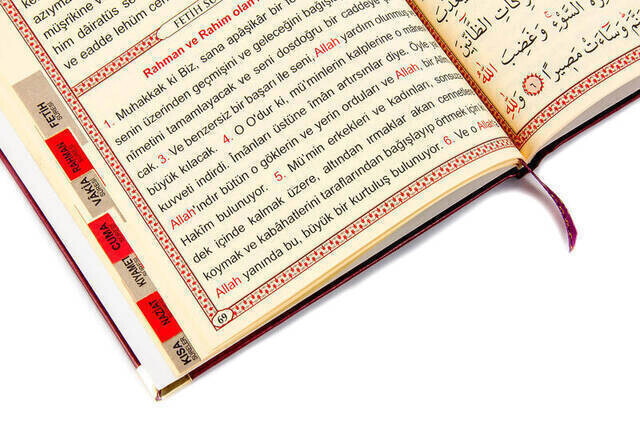 azıyma
müşrikine
him dâiratüs
ve eadde lehüm cehen
FETİH SÛ
Rahman ve Rahim olan
1. Muhakkak ki Biz, sana apâşikâr bir
senin üzerinden geçmişini ve geleceğini bağışla
nimetini tamamlayacak ve seni dosdoğru bir caddeye
cak. 3. Ve benzersiz bir başarı ile seni, Allah yardım olunmuş
büyük kılacak. 4. O O'dur ki, mü'minlerin kalplerine o mâne
kuvveti indirdi. İmânları üstüne îmân artırsınlar diye. Öyle y
Allah'indir bütün o göklerin ve yerin orduları ve Allah, bir Alîm
Hakîm bulunuyor. 5. Mü'min erkekleri ve kadınları, sonsuz
dek içinde kalmak üzere, altından ırmaklar akan cennetler
koymak ve kabâhatlerini taraflarından bağışlayıp örtmek için
Allah yanında bu, büyük bir kurtuluş bulunuyor. 6. Ve o Allah
69
FETİH
SÛRESİ
RAHMAN
SÛRESİ
VÂKIA
SÛRESİ
CUMA
KIYAMET
NAZİAT
KISA
SÛRELER
الظَّانِّينَ
السَّوْءِ وَغَضِبَ اللّٰهُ
وَسَاءَتْ مَصِيرًا ٦ وَلِلّٰهِ